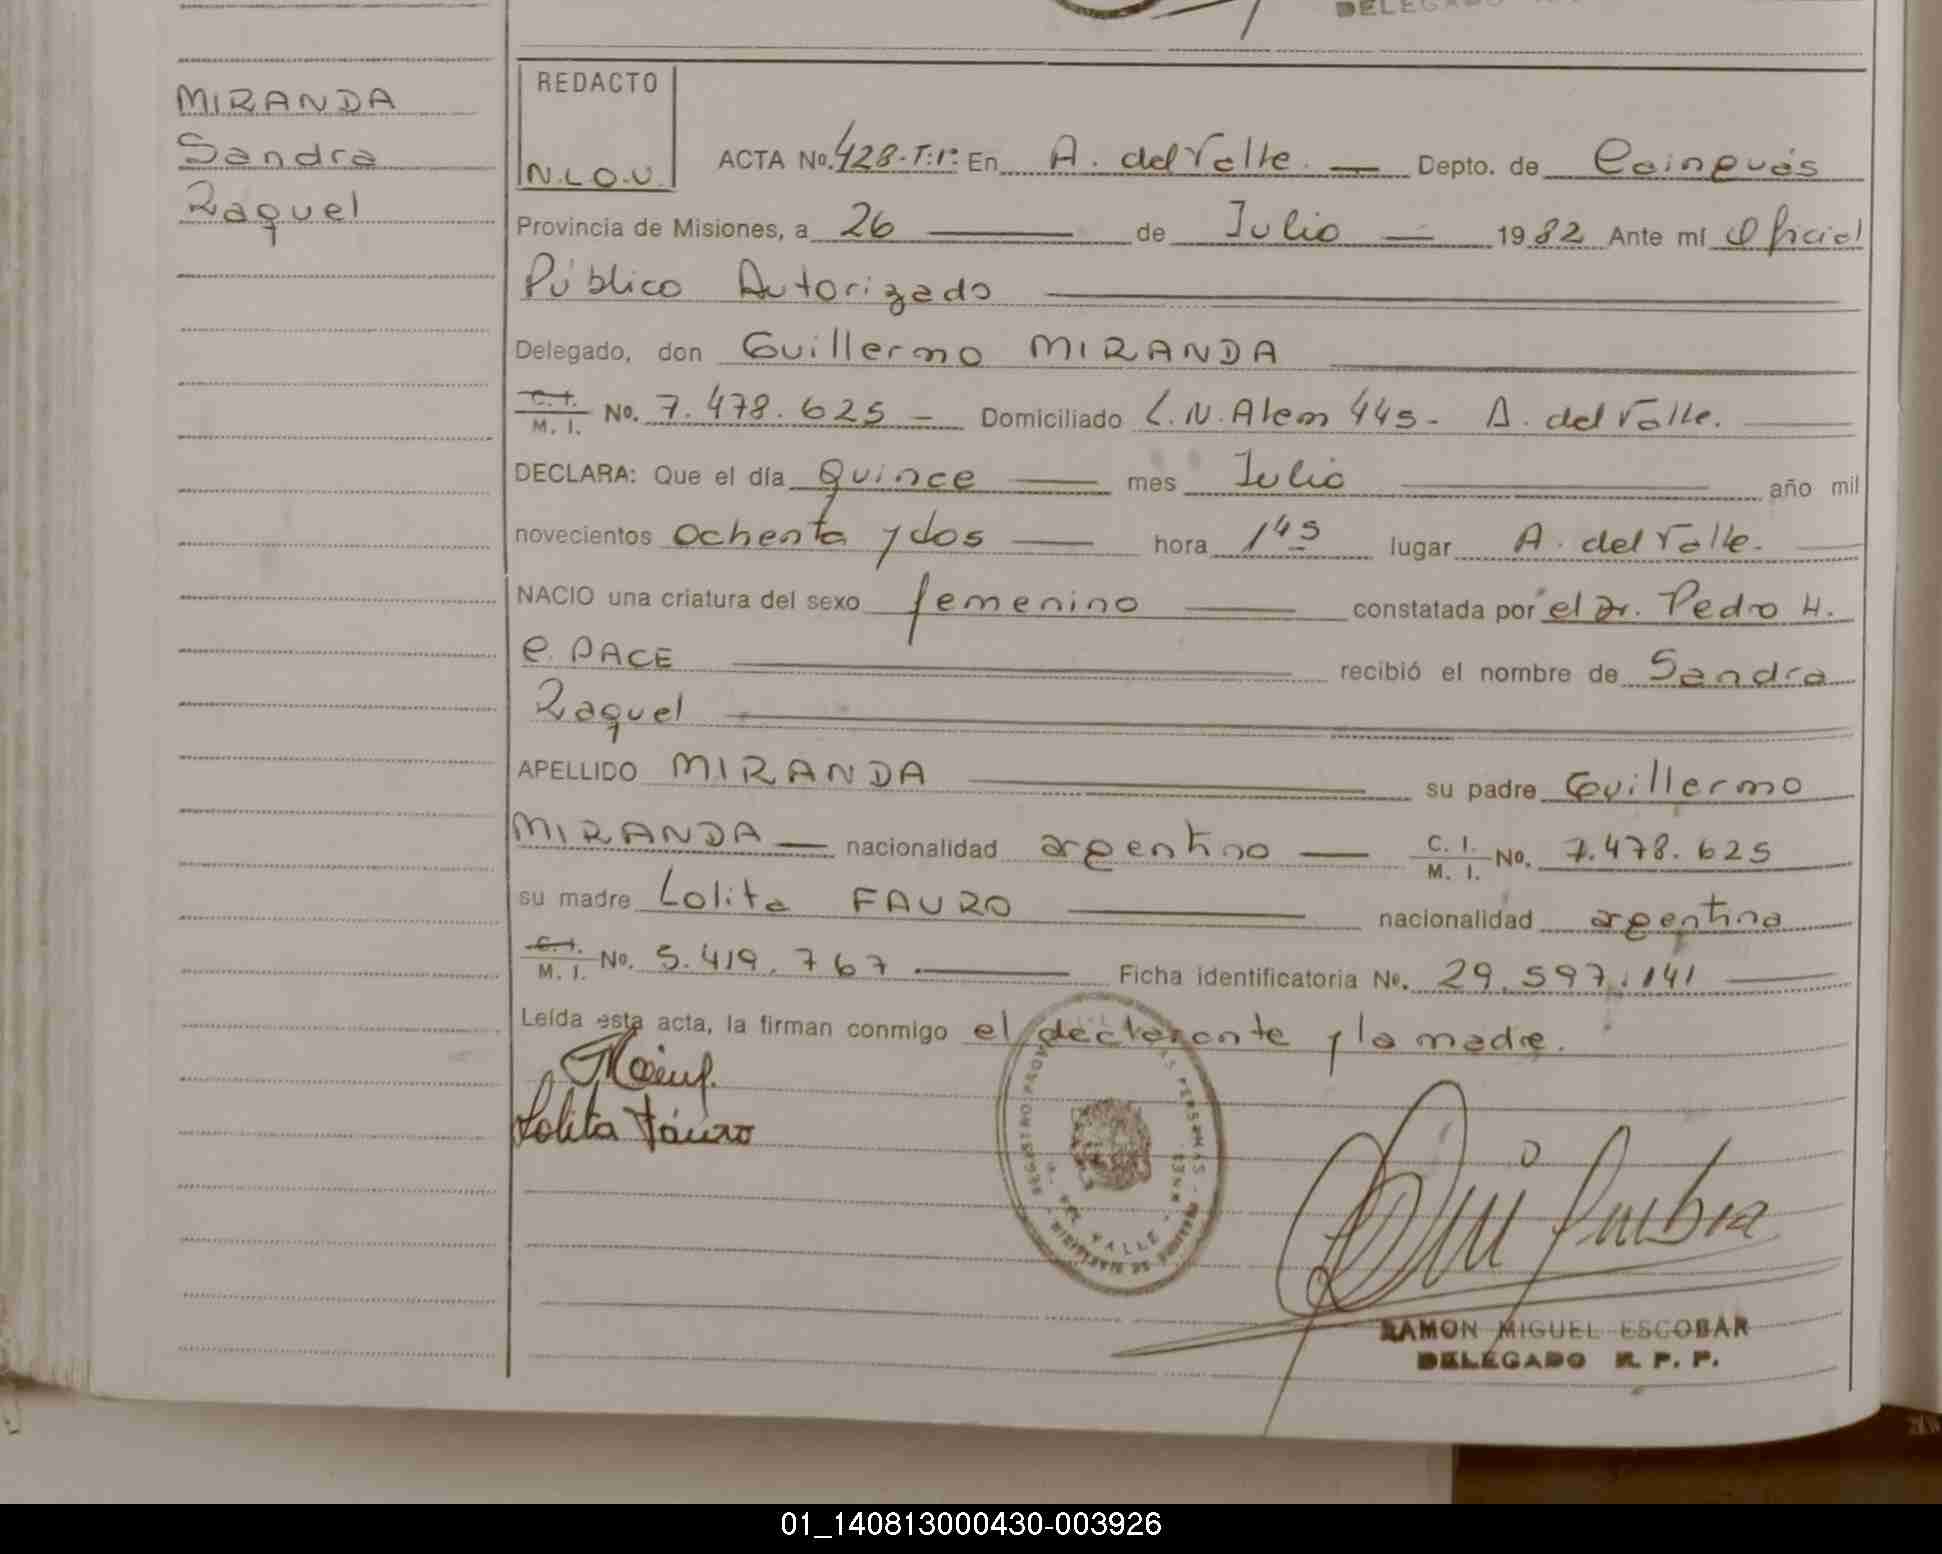 DELEGADO
MIRANDA
Sandra
Raquel
REDACTO
N.L.O.V.
ACTA No. 428-T:1º En A. del Valle. — Depto. de Cainguás
Provincia de Misiones, a 26 — de Julio — 1982 Ante mí Oficial
Público Autorizado —
Delegado, don Guillermo MIRANDA —
C. I. M. I. No. 7.478.625 — Domiciliado L.N. Alem 445- A. del Valle. —
DECLARA: Que el día quince — mes Julio — año mil
novecientos ochenta y dos — hora 1 45 lugar A. del Valle. —
NACIO una criatura del sexo femenino — constatada por el Dr. Pedro H.
e. PACE — recibió el nombre de Sandra
Raquel —
APELLIDO MIRANDA — su padre Guillermo
MIRANDA — nacionalidad argentino — C. I. M. I. No. 7.478.625
su madre Lolita FAURO — nacionalidad argentina
C. I. M. I. No. 5.419.767. — Ficha identificatoria No. 29.597.141 —
Leída esta acta, la firman conmigo el declarante y la madre.
Lolita Fáuro
REGISTRO PROV. PERSONAS
VALLE
RAMON MIGUEL ESCOBAR
DELEGADO R. P. P.
01_140813000430-003926